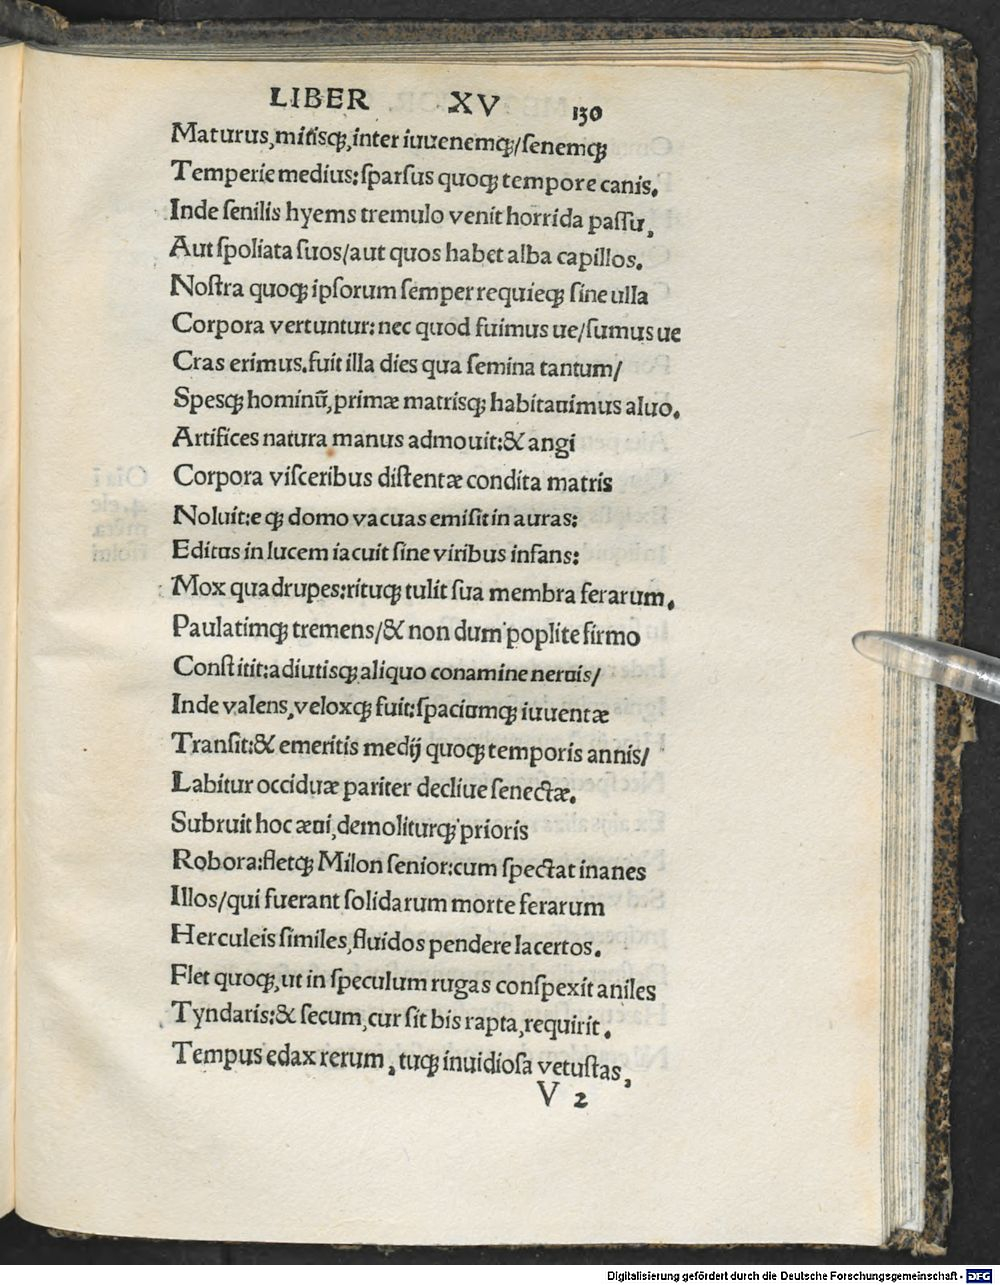 LIBER XV 130
Maturus,mitisqꝫ,inter iuuenemqꝫ/ſenemqꝫ
Temperie medius:ſparſus quoqꝫ tempore canis.
Inde ſenilis hyems tremulo venit horrida paſſu,
Aut ſpoliata ſuos/aut quos habet alba capillos.
Noſtra quoqꝫ ipſorum ſemper requieqꝫ ſine ulla
Corpora vertuntur: nec quod fuimus ue/ſumus ue
Cras erimus.fuit illa dies qua ſemina tantum/
Spesqꝫ hominũ,primæ matrisqꝫ habitauimus aluo.
Artifices natura manus admouit:& angi
Corpora viſceribus diſtentæ condita matris
Noluit:e qꝫ domo vacuas emiſit in auras:
Editus in lucem iacuit ſine viribus infans:
Mox quadrupes:rituqꝫ tulit ſua membra ferarum.
Paulatimqꝫ tremens/& non dum poplite firmo
Conſtitit:adiutisqꝫ aliquo conamine neruis/
Inde valens,veloxqꝫ fuit:ſpaciumqꝫ iuuentæ
Tranſit:& emeritis medij quoqꝫ temporis annis/
Labitur occiduæ pariter decliue ſenectæ.
Subruit hoc æui,demoliturqꝫ prioris
Robora:fletqꝫ Milon ſenior:cum ſpectat inanes
Illos/qui fuerant ſolidarum morte ferarum
Herculeis ſimiles,fluidos pendere lacertos.
Flet quoqꝫ,ut in ſpeculum rugas conſpexit aniles
Tyndaris:& ſecum,cur ſit bis rapta,requirit.
Tempus edax rerum, tuqꝫ inuidioſa vetuſtas,
V 2
Digitalisierung gefördert durch die Deutsche Forschungsgemeinschaft - DFG